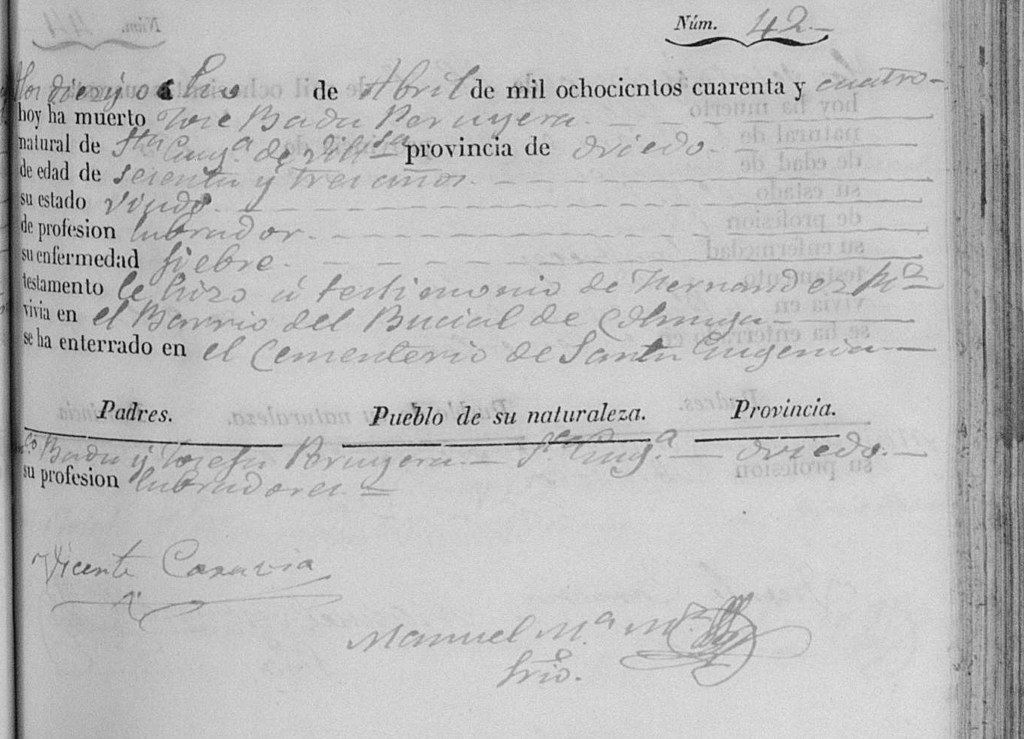 Núm. 42
diez y ocho de Abril de mil ochocientos cuarenta y cuatro
hoy ha muerto Jose Badu Peruyera
natural de Sta Eug.a de provincia de Oviedo
de edad de setenta y tres años
su estado viudo
de profesion labrador
su enfermedad fiebre
testamento le hizo á testimonio de Hernandez
vivia en el Barrio del Bucial de Colunga
se ha enterrado en el Cementerio de Santa Eugenia
Padres. Pueblo de su naturaleza. Provincia.
Badu y Josefa Peruyera Sta Eug.a Oviedo
su profesion labradores
Vicente Caravia
Manuel M.a
Srio.